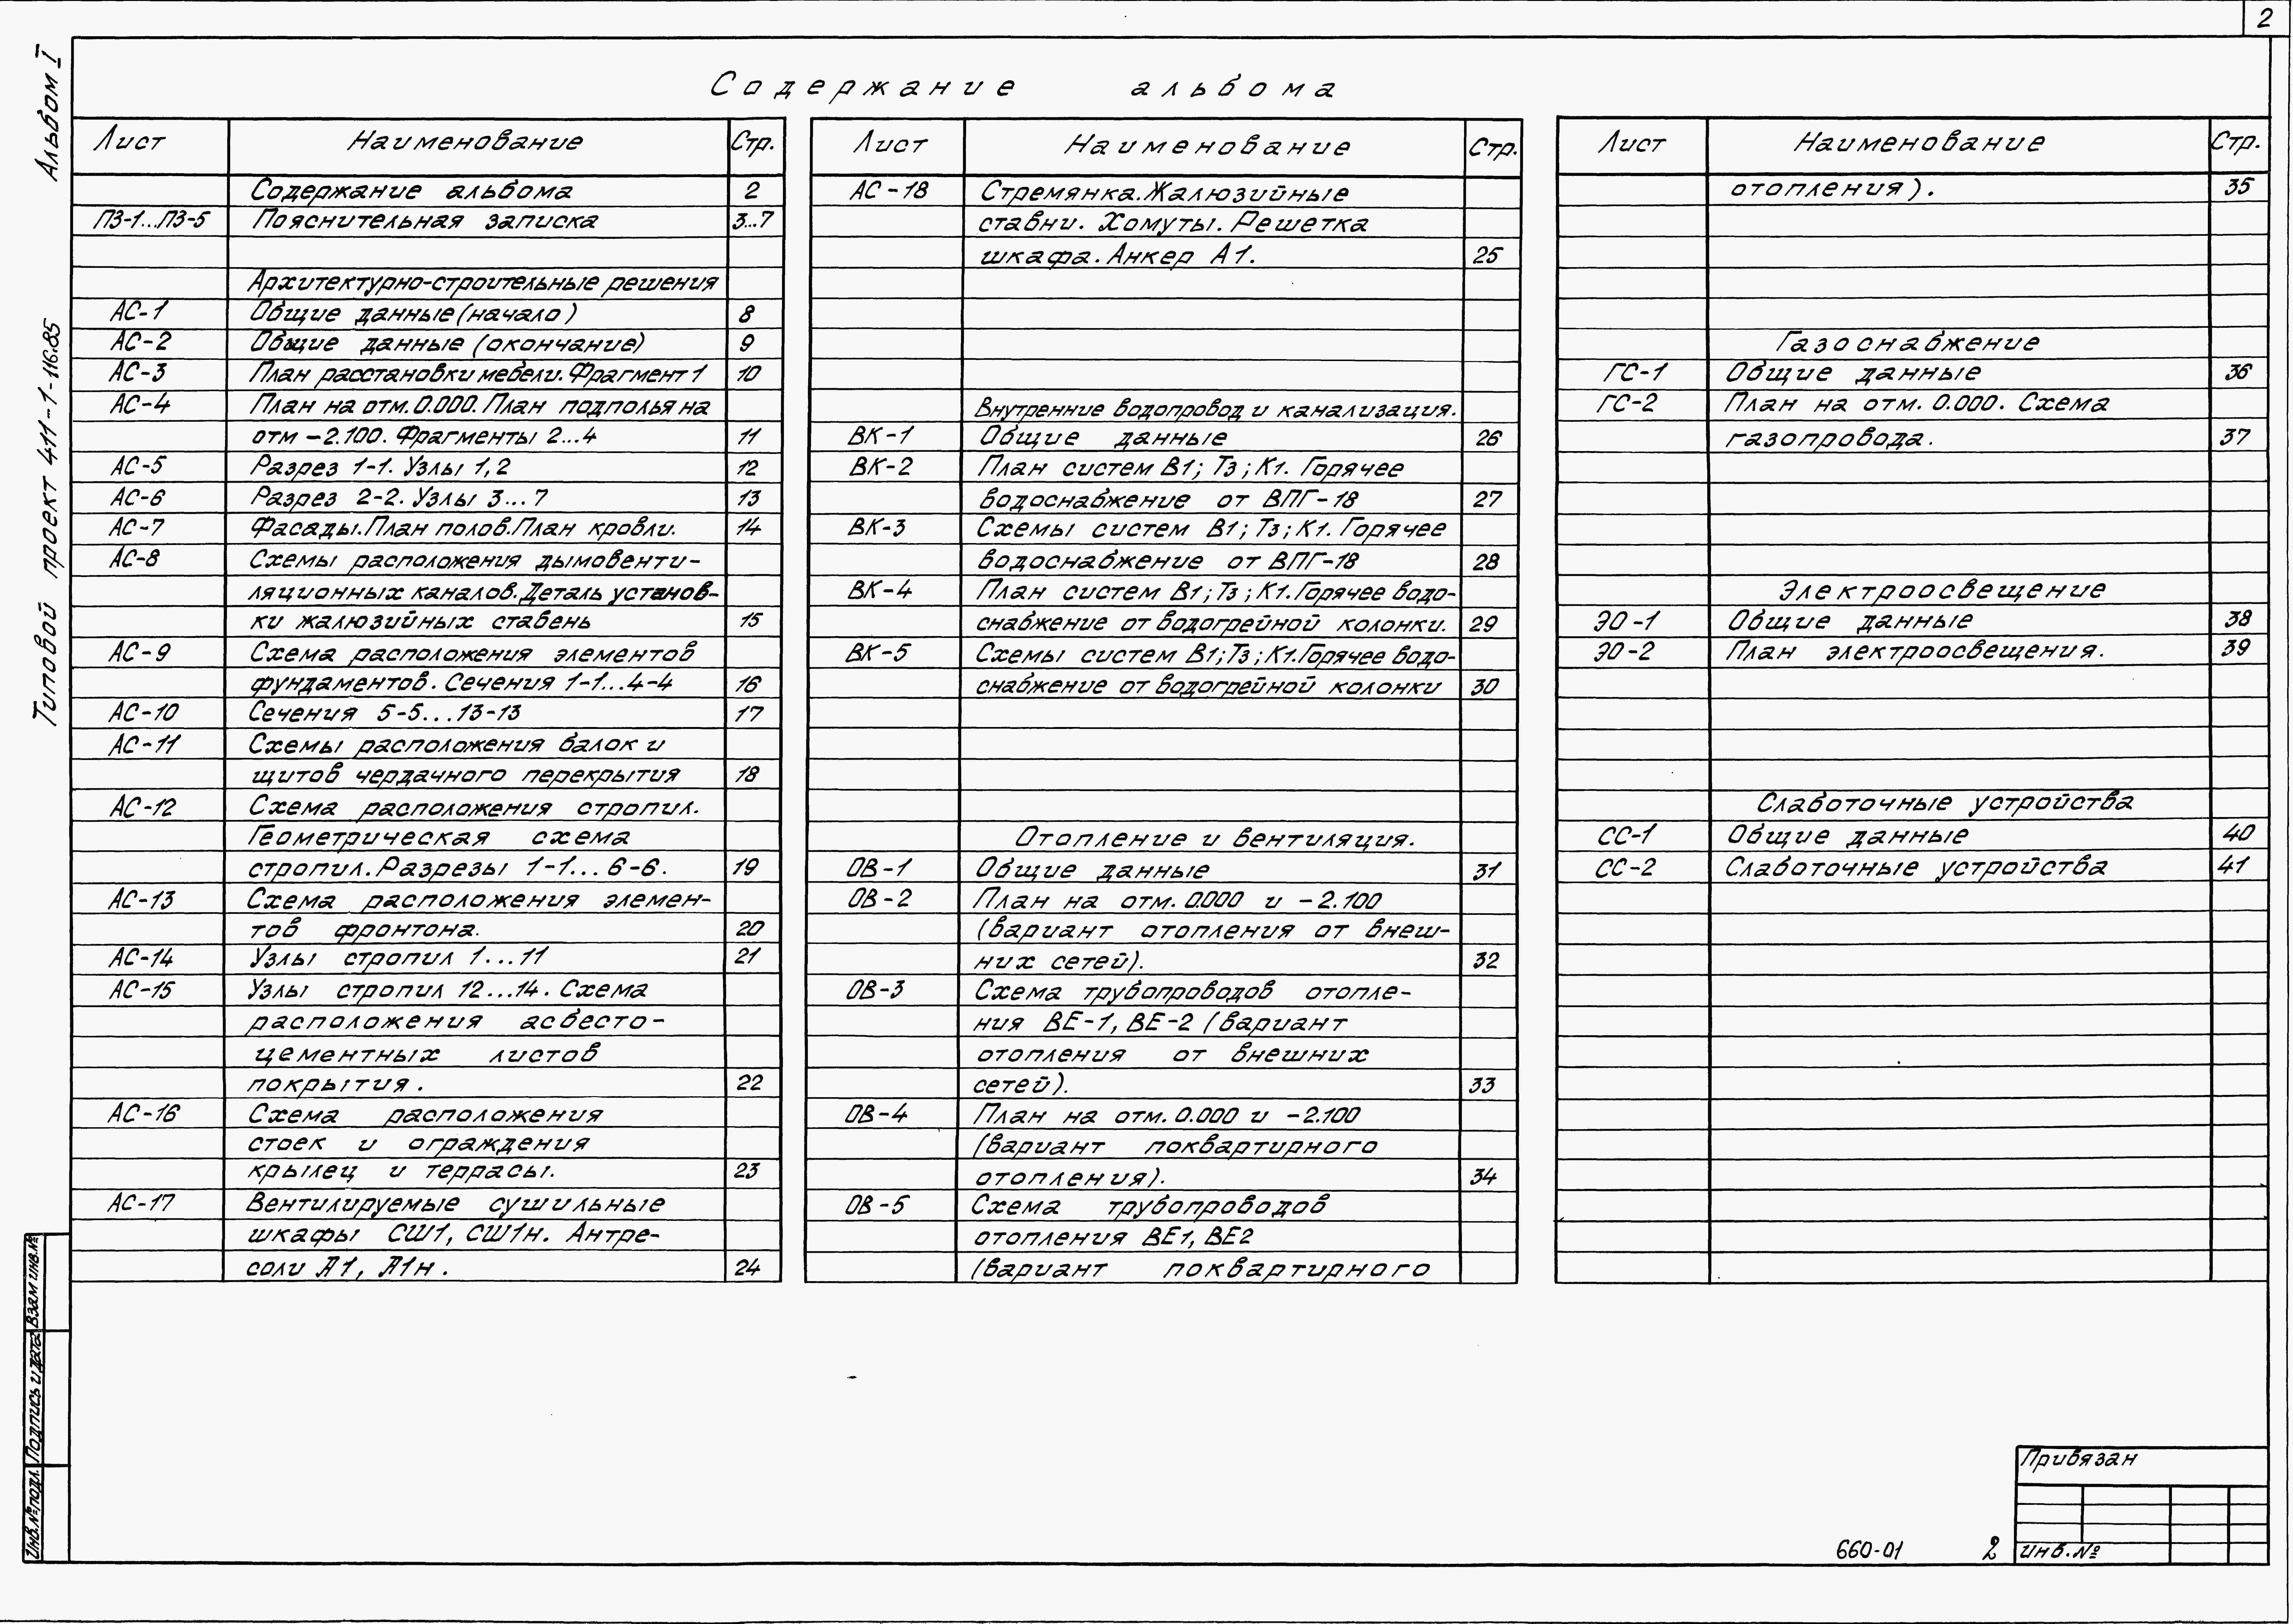 2
Альбом I
Типовой проект 411-1-116.85
Содержание альбома
Лист Наименование Стр.
Содержание альбома 2
ПЗ-1...ПЗ-5 Пояснительная записка 3...7
Архитектурно-строительные решения
АС-1 Общие данные (начало) 8
АС-2 Общие данные (окончание) 9
АС-3 План расстановки мебели. Фрагмент 1 10
АС-4 План на отм. 0.000. План подполья на
отм -2.100. Фрагменты 2...4 11
АС-5 Разрез 1-1. Узлы 1,2 12
АС-6 Разрез 2-2. Узлы 3...7 13
АС-7 Фасады. План полов. План кровли. 14
АС-8 Схемы расположения дымовенти-
ляционных каналов. Деталь установ-
ки жалюзийных ставень 15
АС-9 Схема расположения элементов
фундаментов. Сечения 1-1...4-4 16
АС-10 Сечения 5-5...13-13 17
АС-11 Схемы расположения балок и
щитов чердачного перекрытия 18
АС-12 Схема расположения стропил.
Геометрическая схема
стропил. Разрезы 1-1...6-6. 19
АС-13 Схема расположения элемен-
тов фронтона. 20
АС-14 Узлы стропил 1...11 21
АС-15 Узлы стропил 12...14. Схема
расположения асбесто-
цементных листов
покрытия. 22
АС-16 Схема расположения
стоек и ограждения
крылец и террасы. 23
АС-17 Вентилируемые сушильные
шкафы СШ1, СШ1н. Антре-
соли А1, А1н. 24
Лист Наименование Стр.
АС-18 Стремянка. Жалюзийные
ставни. Хомуты. Решетка
шкафа. Анкер А1. 25
Внутренние водопровод и канализация.
ВК-1 Общие данные 26
ВК-2 План систем В1; Т3; К1. Горячее
водоснабжение от ВПГ-18 27
ВК-3 Схемы систем В1; Т3; К1. Горячее
водоснабжение от ВПГ-18 28
ВК-4 План систем В1; Т3; К1. Горячее водо-
снабжение от водогрейной колонки. 29
ВК-5 Схемы систем В1; Т3; К1. Горячее водо-
снабжение от водогрейной колонки 30
Отопление и вентиляция.
ОВ-1 Общие данные 31
ОВ-2 План на отм. 0.000 и -2.100
(вариант отопления от внеш-
них сетей). 32
ОВ-3 Схема трубопроводов отопле-
ния ВЕ-1, ВЕ-2 (вариант
отопления от внешних
сетей). 33
ОВ-4 План на отм. 0.000 и -2.100
(вариант поквартирного
отопления). 34
ОВ-5 Схема трубопроводов
отопления ВЕ1, ВЕ2
(вариант поквартирного
Лист Наименование Стр.
отопления). 35
Газоснабжение
ГС-1 Общие данные 36
ГС-2 План на отм. 0.000. Схема
газопровода. 37
Электроосвещение
ЭО-1 Общие данные 38
ЭО-2 План электроосвещения. 39
Слаботочные устройства
СС-1 Общие данные 40
СС-2 Слаботочные устройства 41
Взам инв.№
Подпись и дата
Инв.№подл.
Привязан
Инв.№
660-01 2